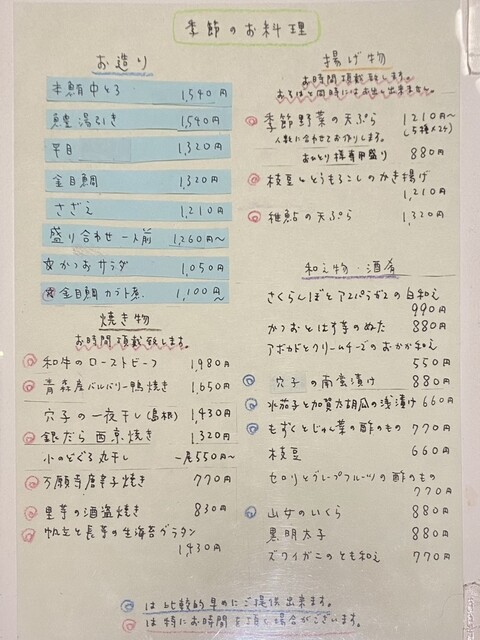 季節のお料理
お造り
本鮪中とろ 1,540円
鱧湯引き 1,540円
平目 1,320円
金目鯛 1,320円
さざえ 1,210円
盛り合わせ一人前 1,260円〜
☆かつおサラダ 1,050円
☆金目鯛カブト煮 1,100円〜
焼き物
お時間頂戴致します。
◎和牛のローストビーフ 1,980円
◎青森産バルバリー鴨焼き 1,650円
穴子の一夜干し(島根) 1,430円
◎銀だら西京焼き 1,320円
小のどぐろ丸干し 一尾550円〜
◎万願寺唐辛子焼き 770円
◎里芋の酒盗焼き 830円
◎帆立と長芋の生海苔グラタン
1,430円
揚げ物
お時間頂戴致します。
あるはと同時にはお出し出来ません。
◎季節野菜の天ぷら 1,210円〜
人数に合わせてお作りします。 (5種×2ヶ)
おひとり様専用盛り 880円
◎枝豆ととうもろこしのかき揚げ
1,210円
◎稚鮎の天ぷら 1,320円
和え物 酒肴
さくらんぼとアスパラガスの白和え
990円
かつおとはす芋のぬた 880円
アボカドとクリームチーズのおかか和え
550円
◎穴子の南蛮漬け 880円
◎水茄子と加賀方胡瓜の浅漬け 660円
◎もずくとじゅん菜の酢のもの 770円
枝豆 660円
セロリとグレープフルーツの酢のもの
770円
◎山女のいくら 880円
黒明太子 880円
ズワイガニのとも和え 770円
◎は比較的早めにご提供出来ます。
◎は特にお時間を頂く場合がございます。